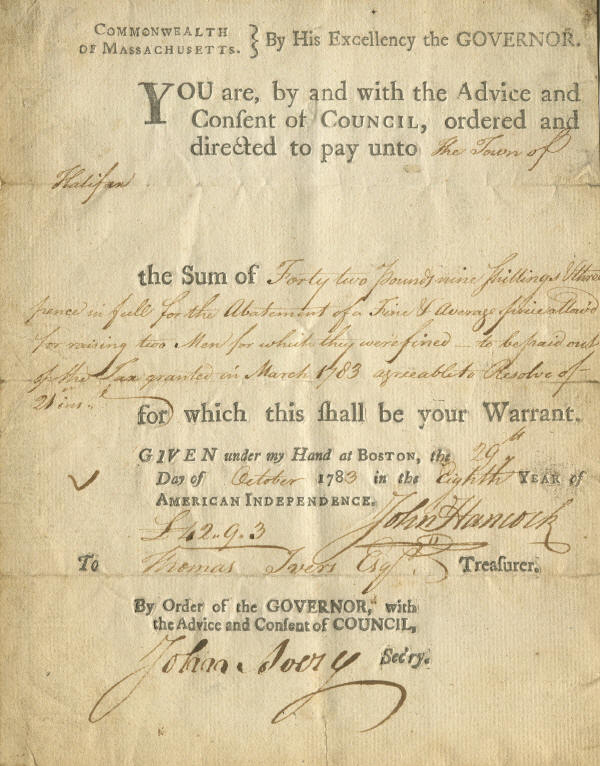 COMMONWEALTH
OF MASSACHUSETTS. } By His Excellency the GOVERNOR.
YOU are, by and with the Advice and
Conſent of COUNCIL, ordered and
directed to pay unto the Town of
Halifax
the Sum of Forty two pounds nine ſhillings & three
pence in full for the Abatement of a Fine & Average price allow'd
for raising two Men for which they were fined — to be paid out
of the Tax granted in March 1783 agreeable to Resolve of
21 inst.
for which this ſhall be your Warrant.
GIVEN under my Hand at BOSTON, the 29th
Day of October 1783 in the Eighth YEAR of
AMERICAN INDEPENDENCE.
£42..9.3 John Hancock
To Thomas Ivers Esqr. Treaſurer.
By Order of the GOVERNOR, with
the Advice and Conſent of COUNCIL,
John Avery Sec'ry.